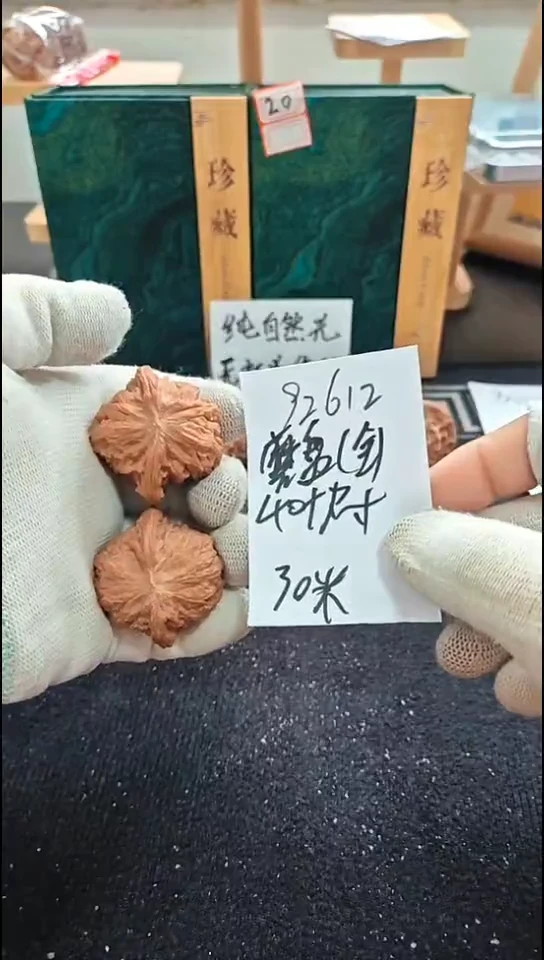 20
珍藏
珍藏
纯自然花
92612
蘑盘(剑)
40+尺寸
30米